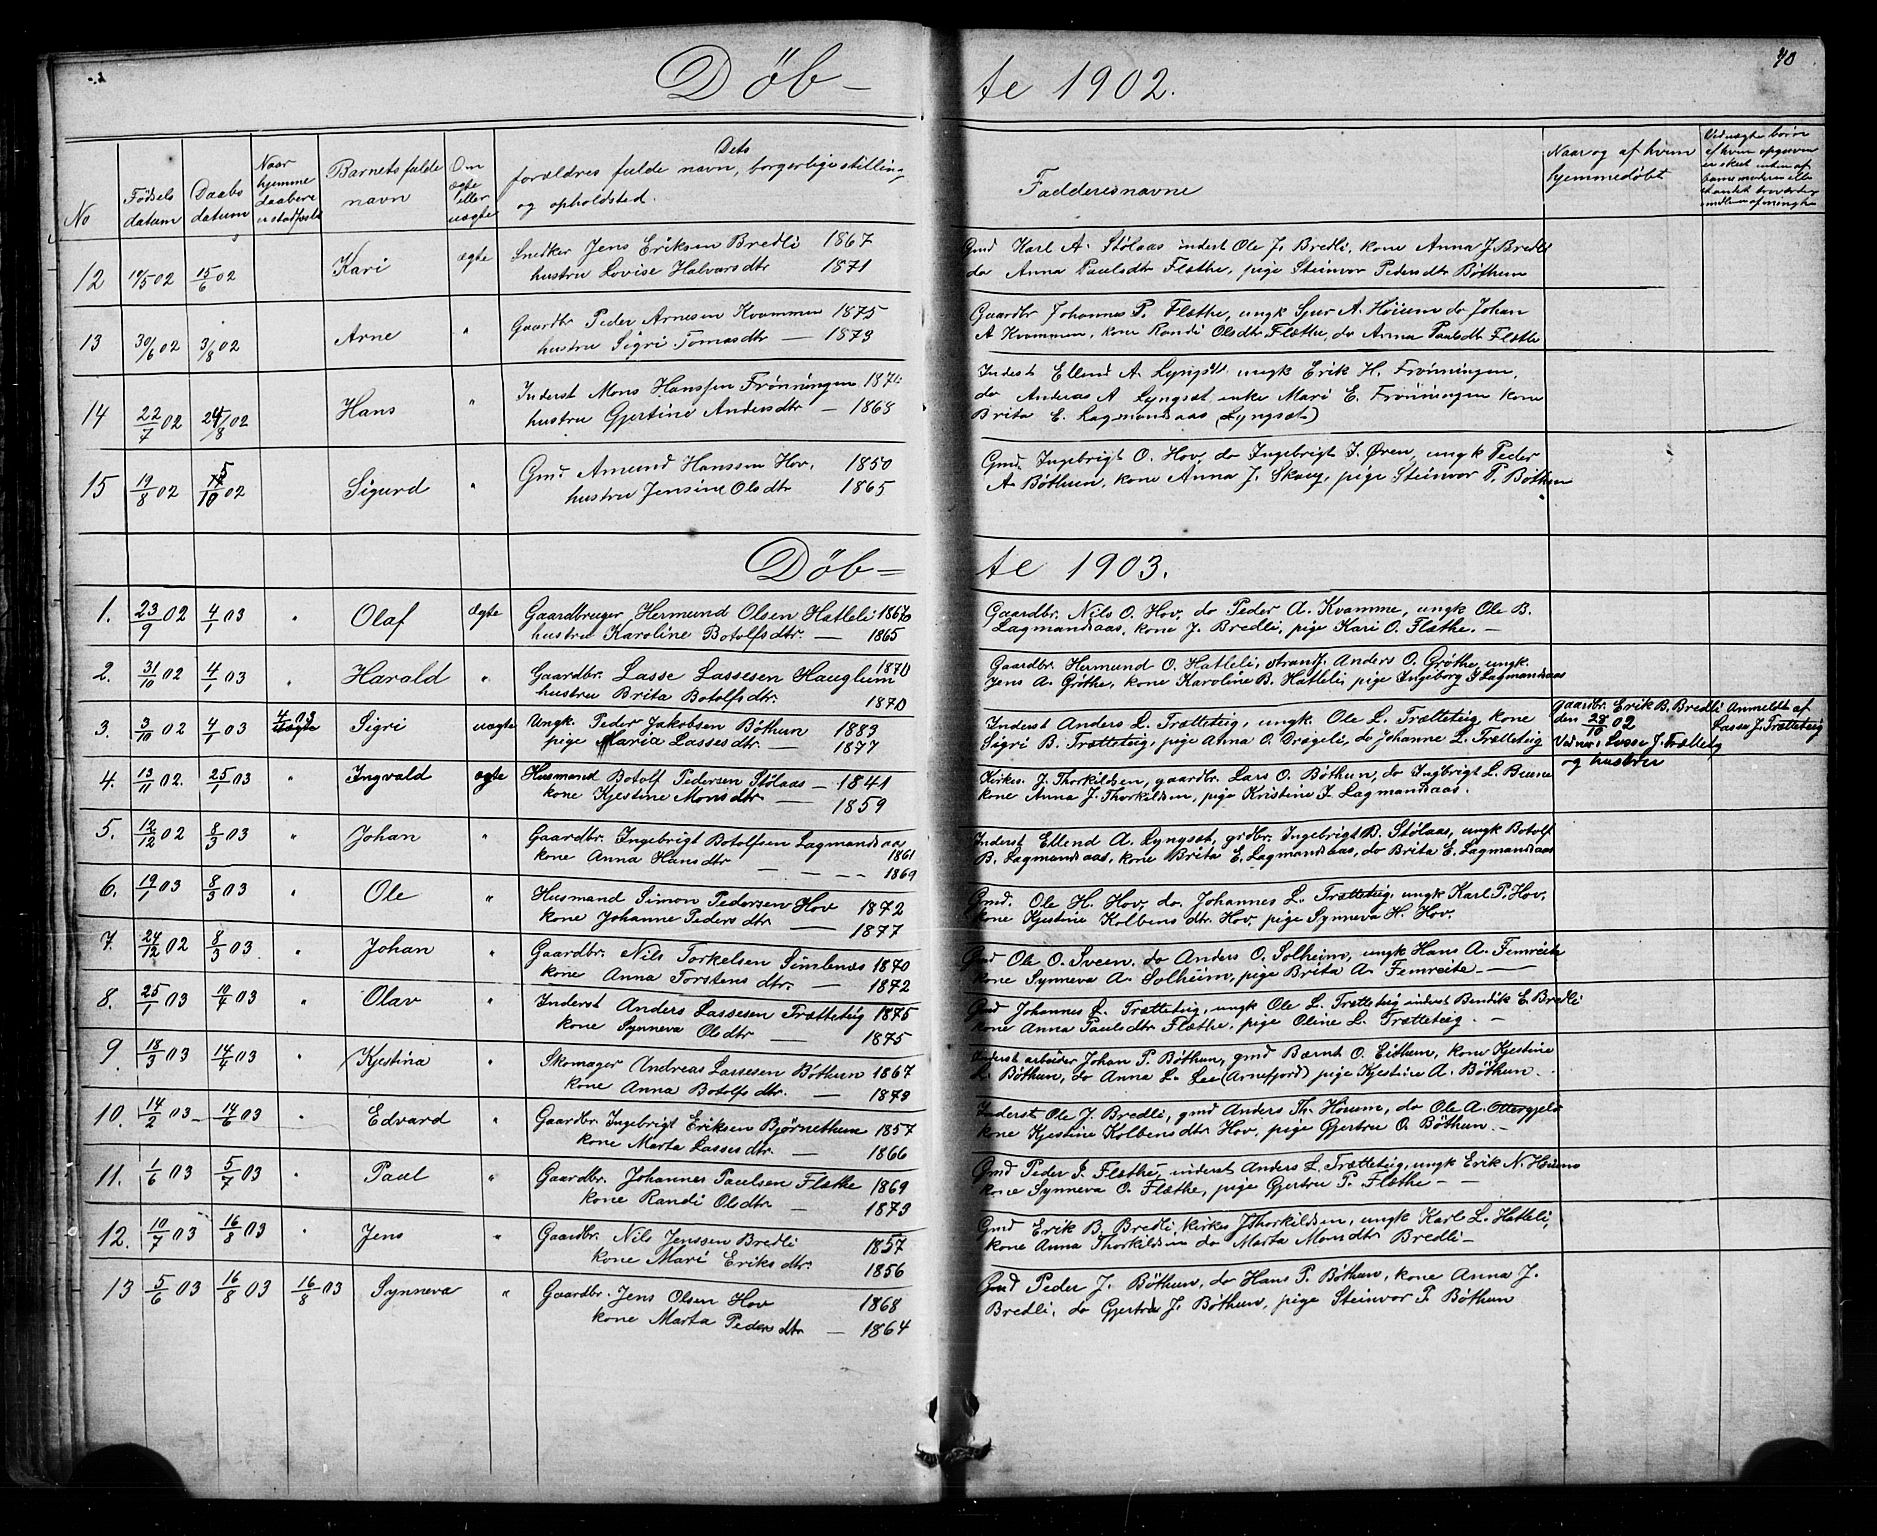 Døb-
te 1902.
40
No
Fødsels datum
Daabs datum
Naar hjemme daaben er stadfæstet
Barnets fulde navn
Om ægte eller uægte
Dets forældres fulde navn, borgerlige stilling og opholdsted.
Faddernes navne
Naar og af hvem hjemmedøbt
12 19/5 02 15/6 02 Kari ægte Snedker Jens Eriksen Bredli 1867
hustru Lovise Halvarsdtr 1871
Gmd Karl A. Stølaas inderst Ole J. Bredli, kone Anna J. Bredli
do Anna Paulsdtr Flæthe, pige Steinvor Pedersdtr Bøthun
13 30/6 02 3/8 02 Arne " Gaardbr Peder Arnesen Kvammen 1875
hustru Sigri Tomasdtr — 1873
Gaardbr Johannes P. Flæthe, ungk Sjur A. Høium do Johan
A Kvammen, kone Randi Olsdtr Flæthe, do Anna Paulsdtr Flæthe
14 22/7 02 24/8 02 Hans " Inderst Mons Hanssen Frønningen 1874
hustru Gjertine Andersdtr — 1868
Inderst Ellend A. Lyngsæt ungk Erik H. Frønningen,
do Andreas A Lyngsæt enke Mari E. Frønningen kone
Brita E. Lagmandsaas (Lyngsæt)
15 19/8 02 5/10 02 Sigurd " Gmd Amund Hanssen Hov, 1850
hustru Jensine Olsdtr 1865
Gmd. Ingebrigt O. Hov, do Ingebrigt I. Øren, ungk Peder
A. Bøthun, kone Anna J. Skaug, pige Steinvor P. Bøthun
Døb-
te 1903.
1. 23/9 02 4/1 03 " Olaf ægte Gaardbruger Hermund Olsen Hatleli 1867
hustru Karoline Botolfsdtr. — 1865
Gaardbr. Nils O. Hov, do Peder A. Kvamme, ungk Ole B.
Lagmandsaas, kone J. Bredli, pige Kari O. Flæthe. —
2. 31/10 02 4/1 03 " Harald " Gaardbr. Lasse Lassesen Hauglum 1870
hustru Brita Botolfsdtr. 1870
Gaardbr. Hermund O. Hatleli, strandf. Anders O. Grøthe, ungk.
Jens A. Grøthe, kone Karoline B. Hatleli, pige Ingeborg I Lagmandsaas
3. 3/10 02 4/1 03 4/1 03 Sigri uægte Ungk. Peder Jakobsen Bøthun 1883
pige Maria Lassesdtr. — 1877
Inderst Anders L. Trætteteig, ungk. Ole L. Trætteteig kone
Sigri B. Trætteteig, pige Anna O. Drægeli, do Johanne L. Trætteteig
Gaardbr. Erik B. Bredli
den 28/10 02
Vidner: Lasse J. Trætteteig
og hustru
Anmeldt af
Lasse J. Trætteteig
4. 13/11 02. 25/1 03 " Ingvald ægte Husmand Botolf Pedersen Stølaas — 1841
kone Kjestine Monsdtr. — 1859
Kirkes. J. Thorkildsen, gaardbr. Lars O. Bøthun, do Ingbrigt L.
kone Anna J. Thorkildsen, pige Kristine I. Lagmandsaas.
5. 12/12 02 8/3 03 " Johan " Gaardbr. Ingebrigt Botolfsen Lagmandsaas
1861
kone Anna Hansdtr — — — 1869
Inderst Ellend A. Lyngsæt, grdbr. Ingebrigt B. Stølaas, ungk Botolf
B. Lagmandsaas, kone Brita E. Lagmandsaas, do Brita E. Lagmandsaas
6. 19/1 03 8/3 03 " Ole " Husmand Simon Pedersen Hov 1872
kone Johanne Pedersdtr — 1877
Gmd. Ole H. Hov, do. Johannes L. Trætteteig, ungk Karl P. Hov,
kone Kjestine Kolbensdtr. Hov, pige Synneva H. Hov.
7. 24/12 02 8/3 03 " Johan " Gaardbr. Nils Torkelsen Simlenæs 1870
kone Anna Torstensdtr. — 1872
Gmd Ole O. Sveen, do Anders O. Solheim, ungk Hans A. Fimreite
kone Synneva A. Solheim, pige Brita A. Fimreite —
8. 25/1 03 10/4 03 " Olav " Inderst Anders Lassesen Trætteteig 1875
kone Synneva Olsdtr — 1875
Gmd Johannes L. Trætteteig, ungk Ole L. Trætteteig inderst Bendik E. Bredli
kone Anna Paulsdtr Flæthe, pige Oline L. Trætteteig. —
9. 18/3 03 14/4 03 Kjestina " Skomager Andreas Lassesen Bøthun 1867
kone Anna Botolfsdtr. — 1873
Inderst arbeider Johan P. Bøthun, gmd Bærnt O. Eithun, kone Kjestine
L. Bøthun, do Anna L. Lee (Arnefjord) pige Kjestine A. Bøthun.
10. 14/2 03 — 14/6 03 " Edvard " Gaardbr Ingebrigt Eriksen Bjørnethun 1857
kone Marta Lassesdtr. — 1866
Inderst Ole J. Bredli, gmd Anders Th. Høium, do Ole A.
kone Kjestine Kolbensdtr Hov, pige Gjertru O. Bøthun. —
11. 1/6 03 5/7 03 " Paul " Gaardbr. Johannes Paulsen Flæthe 1869
kone Randi Olsdtr — 1873
Gmd Peder J. Flæthe, inderst Anders L. Trætteteig, ungk Erik N. Høium
kone Synneva O. Flæthe, pige Gjertru P. Flæthe —
12. 10/7 03 16/8 03 " Jens " Gaardbr. Nils Jenssen Bredli 1857
kone Mari Eriksdtr. 1856
Gmd Erik B. Bredli, kirkes J Thorkildsen, ungk Karl L. Hatleli,
kone Anna Thorkildsen do Marta Monsdtr Bredli —
13 5/6 03 16/8 03 16/8 03 Synneva " Gaardbr. Jens Olsen Hov 1868
kone Marta Pedersdtr — 1864
Gmd Peder J. Bøthun, do Hans P. Bøthun, kone Anna J.
Bredli, do Gjertru J. Bøthun, pige Steinvor P. Bøthun